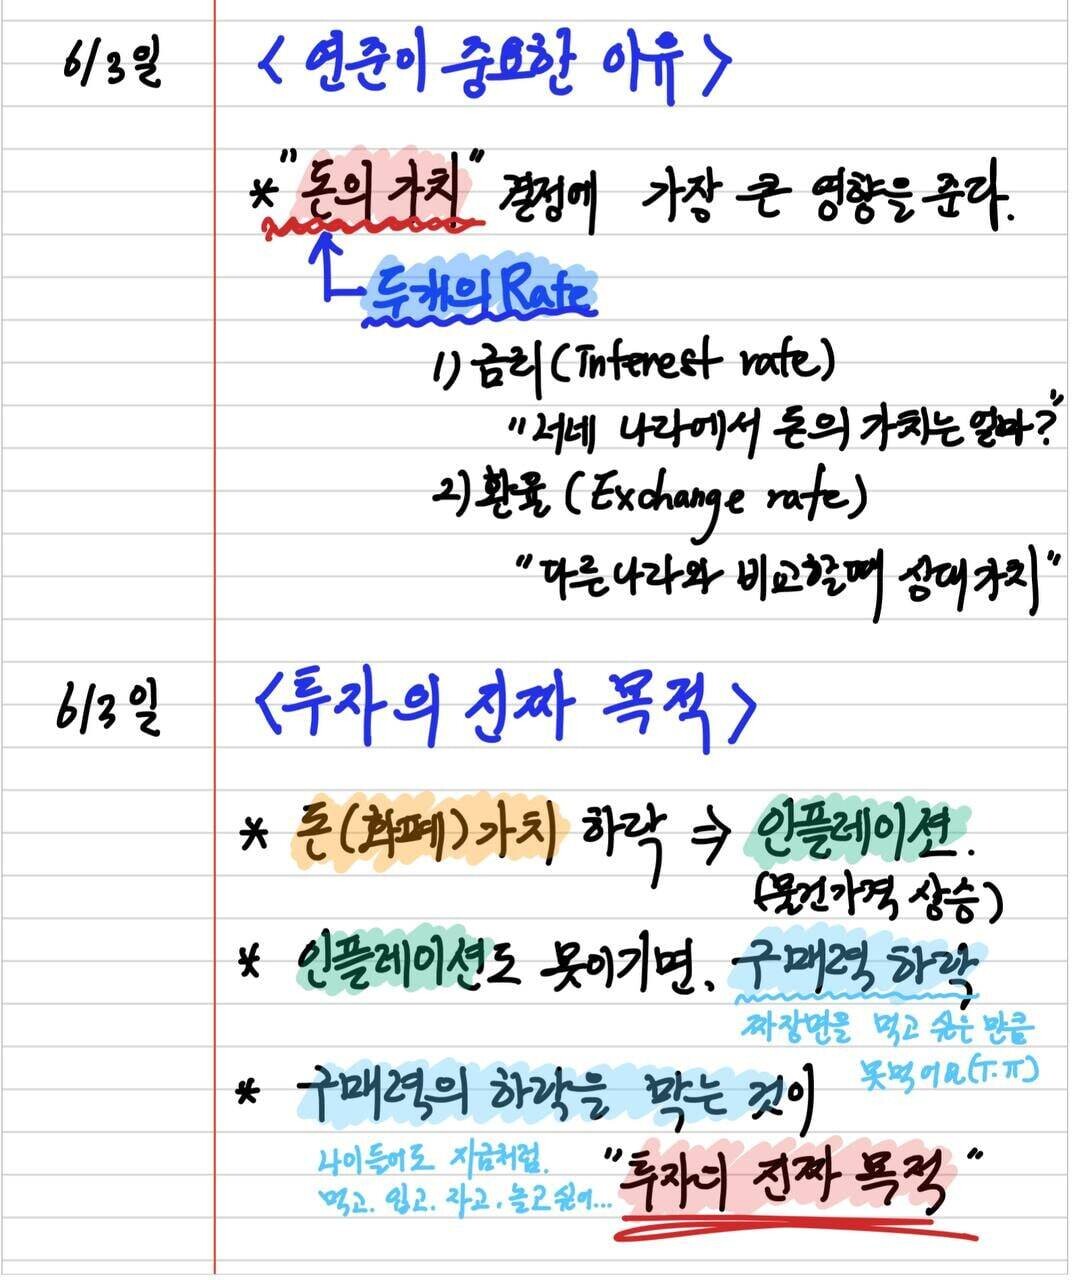 6/3일 <연준이 중요한 이유>
* "돈의 가치" 결정에 가장 큰 영향을 준다.
두개의 Rate
1) 금리 (Interest rate)
"저네 나라에서 돈의 가치는 얼마?"
2) 환율 (Exchange rate)
"다른나라와 비교할때 상대가치"
6/3일 <투자의 진짜 목적>
* 돈(화폐)가치 하락 ⇒ 인플레이션.
(물건가격 상승)
* 인플레이션도 못이기면, 구매력 하락
짜장면을 먹고 싶은 만큼
못먹어요(T.T)
* 구매력의 하락을 막는 것이
나이들어도 지금처럼.
먹고. 입고. 자고. 놀고 싶어...
"투자의 진짜 목적"